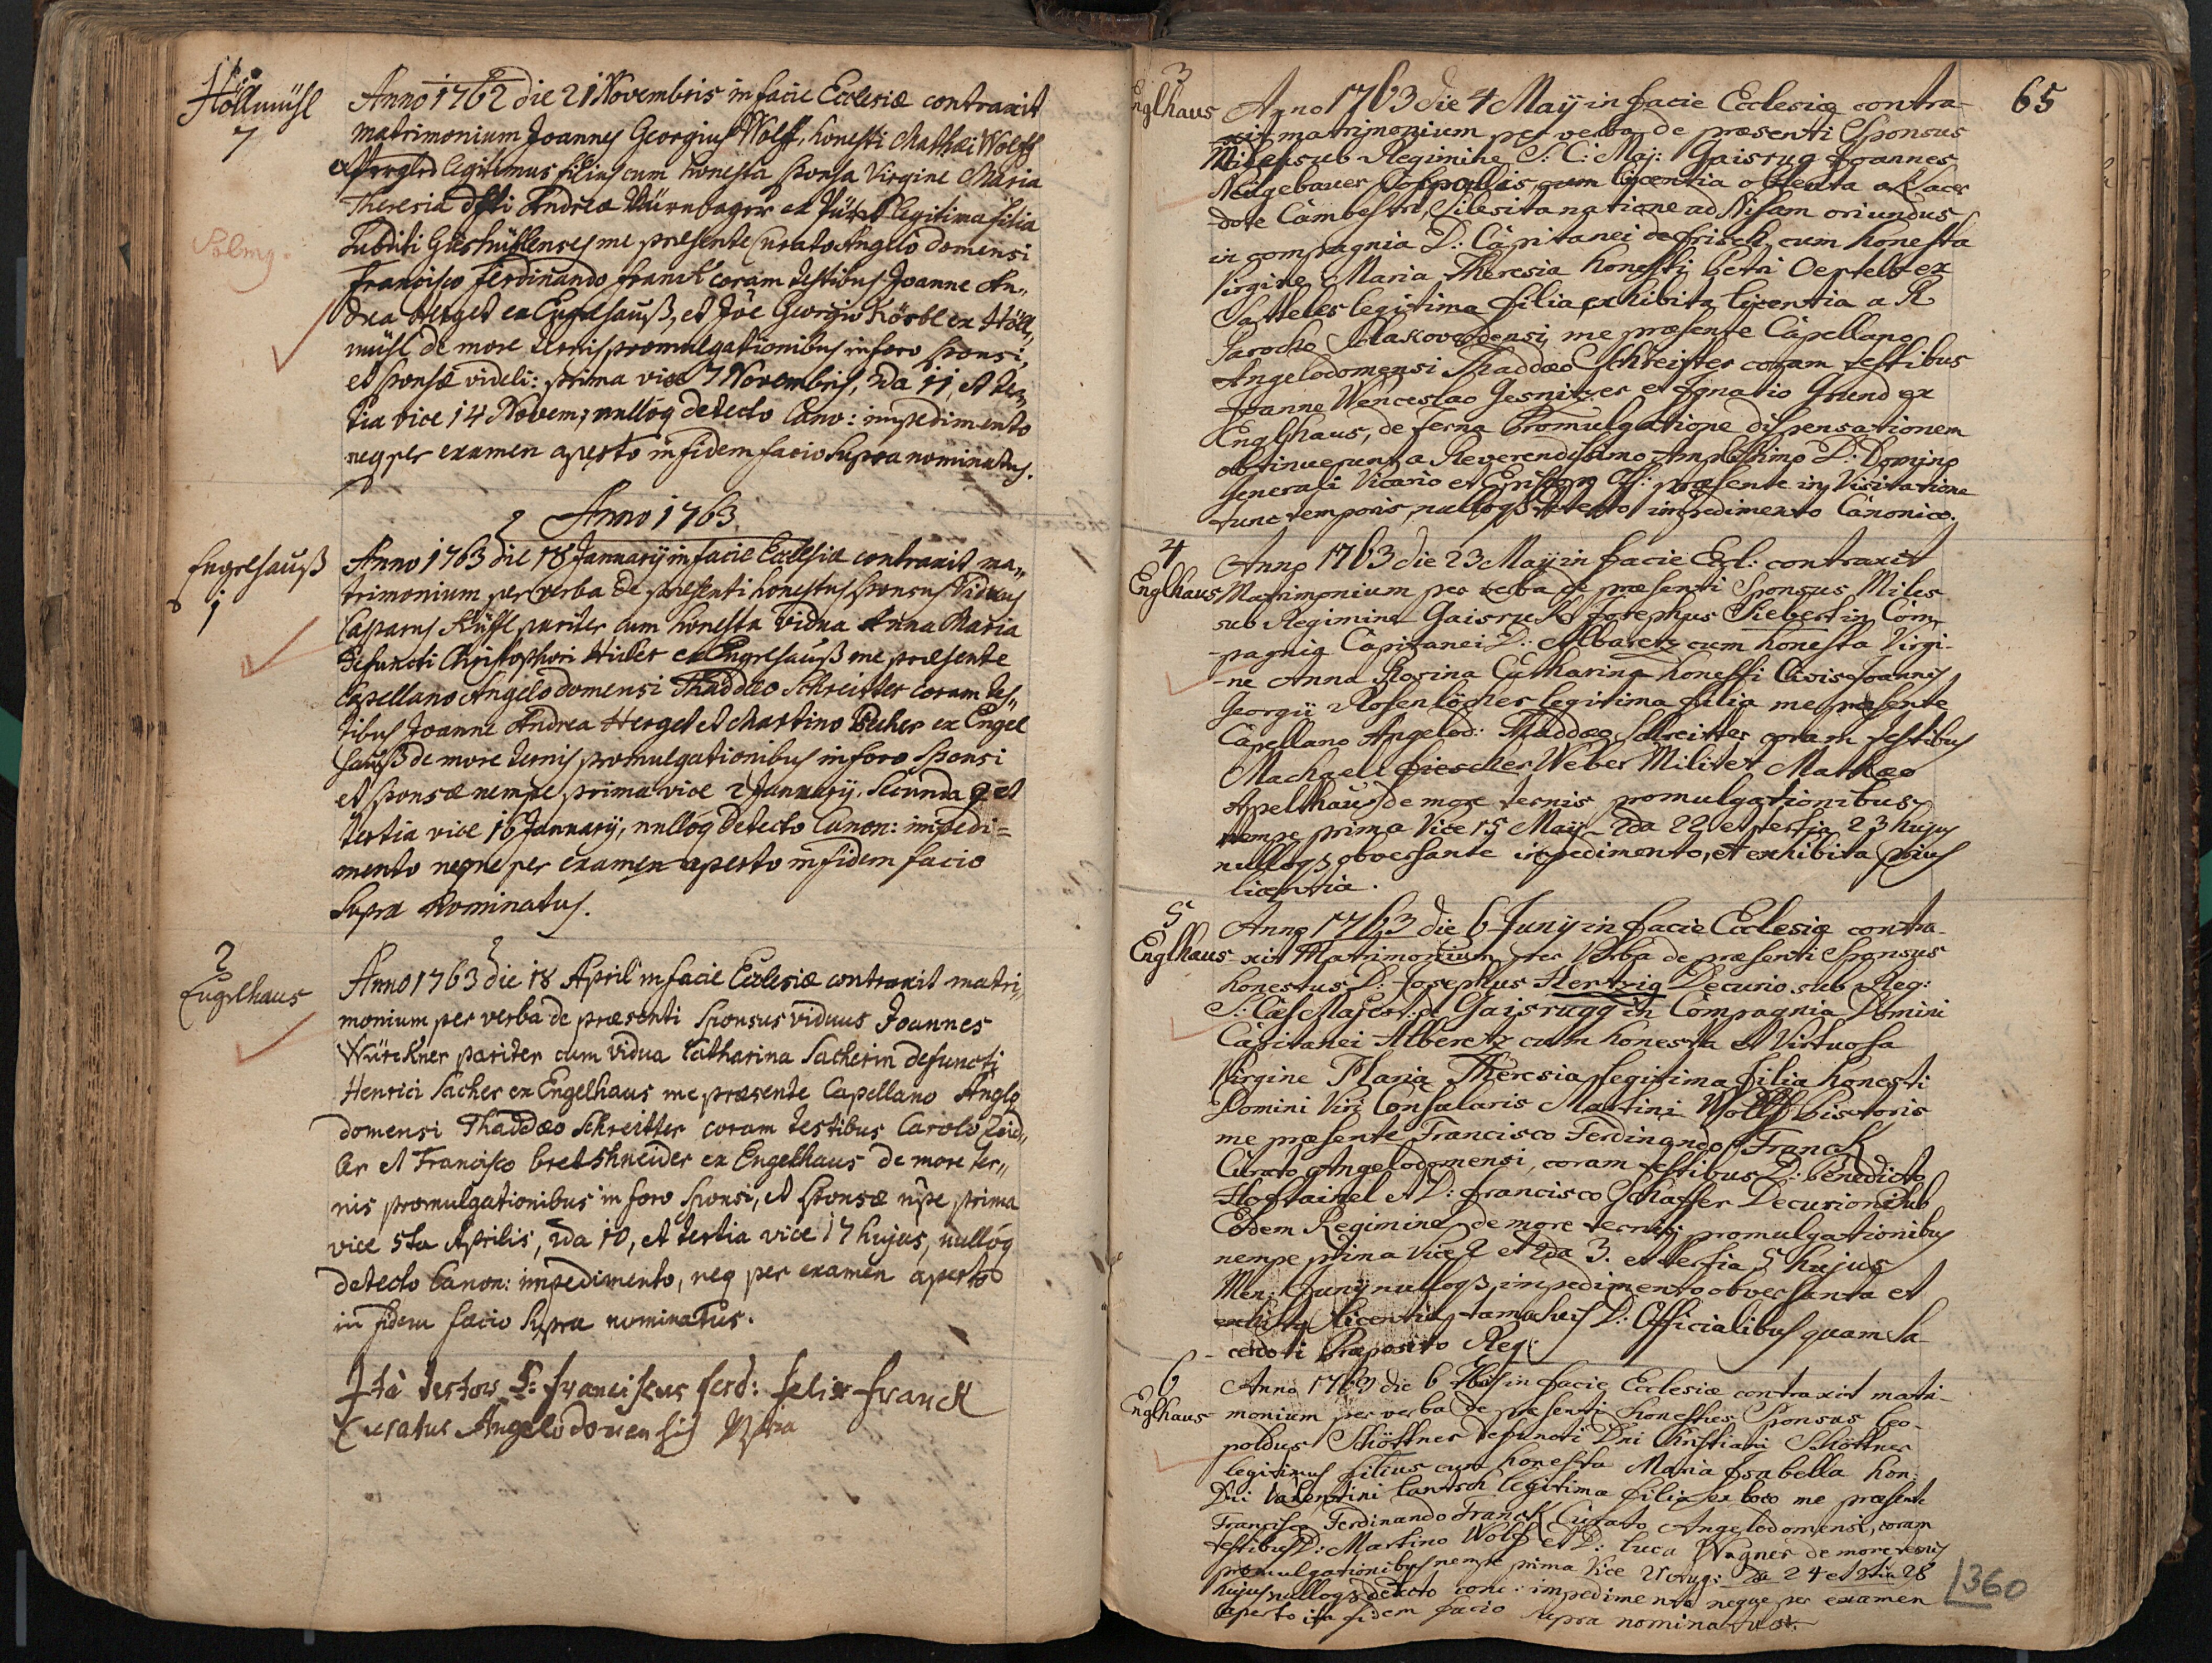 11.
Höllmühl
7
Anno 1762 die 21 Novembris in facie Ecclesiæ contraxit
matrimonium Joannes Georgius Wolff, honesti Mathæi Wolffs
legitimus filius cum honesta sponsa Virgine Maria
Theresia dfti Andreæ Nürnbager ex legitima filia
Subditi Gieshüblenses me præsente Curato Angelo domensi
Francisco Ferdinando Franck coram testibus Joanne An„
drea Herget ex Engelhauß, et Jöe Georgio Körbl ex Höll„
mühl de more ternis promulgationibus in foro sponsi,
et sponsæ videli: prima vice 7 Novembris, 2da 11, et ter„
tia vice 14 Novem; nullóq detecto Cano: impedimento
neq per examen aperto in fidem facio supra nominatus.
Anno 1763
Engelhauß
1
Anno 1763 die 18 Januarij in facie Ecclesiæ contraxit ma„
trimonium per verba de præsenti honestus sponsus Viduus
Casparus pariter cum honesta vidua Anna Maria
defuncti Christophori ex Engelhauß me præsente
Capellano Angelodomensi Thaddæo Schreitter coram tes„
tibus Joanne Andrea Herget et Martino Becher ex Engel
hauß de more ternis promulgationibus in foro sponsi
et sponsæ nempe prima vice 2 Januarij, secunda 9 et
tertia vice 16 Januarij, nullóq detecto Canon: impedi=
mento neque per examen aperto in fidem facio
supra Nominatus.
2
Engelhaus
2
Anno 1763 die 18 April in facie Ecclesiæ contraxit matri„
monium per verba de præsenti sponsus viduus Joannes
Würckner pariter cum vidua Catharina Sacherin defuncti
Henrici Sacher ex Engelhaus me præsente Capellano Anglo
domensi Thaddæo Schreitter coram testibus Carolo Zeid„
ler et Francisco Bretshneider ex Engelhaus de more ter„
nis promulgationibus in foro sponsi, et sponsæ nipe prima
vice 5ta Aprilis, 2da 10, et tertia vice 17 hujus, nullóq
detecto Canon: impedimento, neq per examen aperto
in fidem facio supra nominatus.
Ità testor P: Franciscus Ferd: Felix Franck
Curatus Angelodomensis
65
3
Englhaus
Anno 1763 die 4 Maij in facie Ecclesiæ contra-
xit matrimonium per verba de præsenti Sponsus
Miles sub Regimine S: C: Maj: Gaisrug Joannes
Neügebauer cum licentia obtenta a Sacer
dote Cambestri, Silesita natione ad Nisam oriundus
in compagnia D: Capitanei de Frisch cum honesta
Virgine Maria Theresia honesti Petri Oertels ex
Satteles legitima filia exhibita licentia a R
Parocho Schlakoverdensi me præsente Capellano
Angelodomensi Thaddæo Schreitter coram testibus
Joanne Wenceslao Gesnitzer et Ignatio Grund ex
Englhaus, de terna Promulgatione dispensationem
obtinuerunt a Reverendissimo Amplissimo D: Domino
Generali Vicario et præsente in Visitatione
tunc temporis, nulloqs detecto impedimento Canonico.
4
Englhaus
Anno 1763 die 23 Maij in facie Eccl: contraxit
Matrimonium per verba de præsenti Sponsus Miles
sub Regimine Gaisruk Josephus Siebert in Com-
-pagnia Capitanei D: Albaretz cum honesta Virgi-
-ne Anna Rosina Catharina honesti Civis Joannis
Georgii Rosenlöcher legitima filia me præsente
Capellano Angelod: Thaddæo Schreitter coram testibus
Machaell Fiescher Weber Milit et Mathæo
Apelthaus de more ternis promulgationibus
nempe prima Vice 15 Maij 2da 22 et tertia 23 hujus
nulloqs obversante impedimento, et exhibita prius
licentia.
5
Englhaus
Anno 1763 die 6 Junij in facie Ecclesiæ contra-
xit Matrimonium per Verba de præsenti Sponsus
honestus D: Josephus Hertrig Decurio sub Reg:
S: Cæs Majest: de Gaisrugg in Compagnia Domini
Capitanei Alberetz cum honesta et Virtuosa
Virgine Maria Theresia legitima filia honesti
Domini Viri Consularis Martini Wolff Pistoris
me præsente Francisco Ferdinando Franck
Curato Angelodomensi, coram testibus D: Benedicto
Hofstainel et D: Francisco Schaffer Decurioni sub
Eodem Regimine, de more ternis promulgationibus
nempe prima vice 2 et 2da 3. et tertia 5 hujus
Men: Junij nulloqs impedimento obversante et
licentia tam a suis D: Officialibus quam Sa-
cerdoti Præposito Reg:
6
Englhaus
Anno 1763 die 6 in facie Ecclesiæ contraxit matri-
monium per verba de præsenti honestus Sponsus Leo-
poldus Schöttner defuncti Dni Christiani Schöttner
legitimus filius cum honesta Maria Isabella hon:
Dni Valentini Lantsch legitima filia ex loco me præsente
Francisco Ferdinando Franck Curato Angelodomensi, coram
testibus D: Martino Wolff et D: Luca Wagner de more ternis
promulgationibus nempe prima Vice 21 Aug: 2da 24 et 3tia 28
hujus nulloqs detecto cano: impedimento neque per examen
aperto in fidem facio supra nominatus.
1360